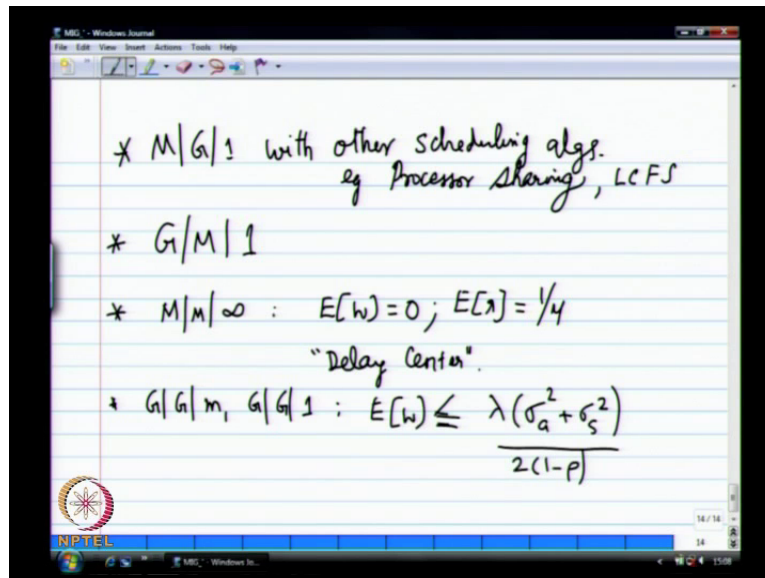 MIG_* - Windows Journal
File Edit View Insert Actions Tools Help
* M|G|1 with other scheduling algs.
eg Processor sharing, LCFS
* G/M|1
* M|M|∞ : E[w)=0; E[r]=1/μ
"Delay Center".
* G|G|m, G|G|1 : E[w) ≤ λ(σa²+σs²)
2(1-ρ)
14 / 14
14
NPTEL
MIG_* - Windows Jo...
15:08